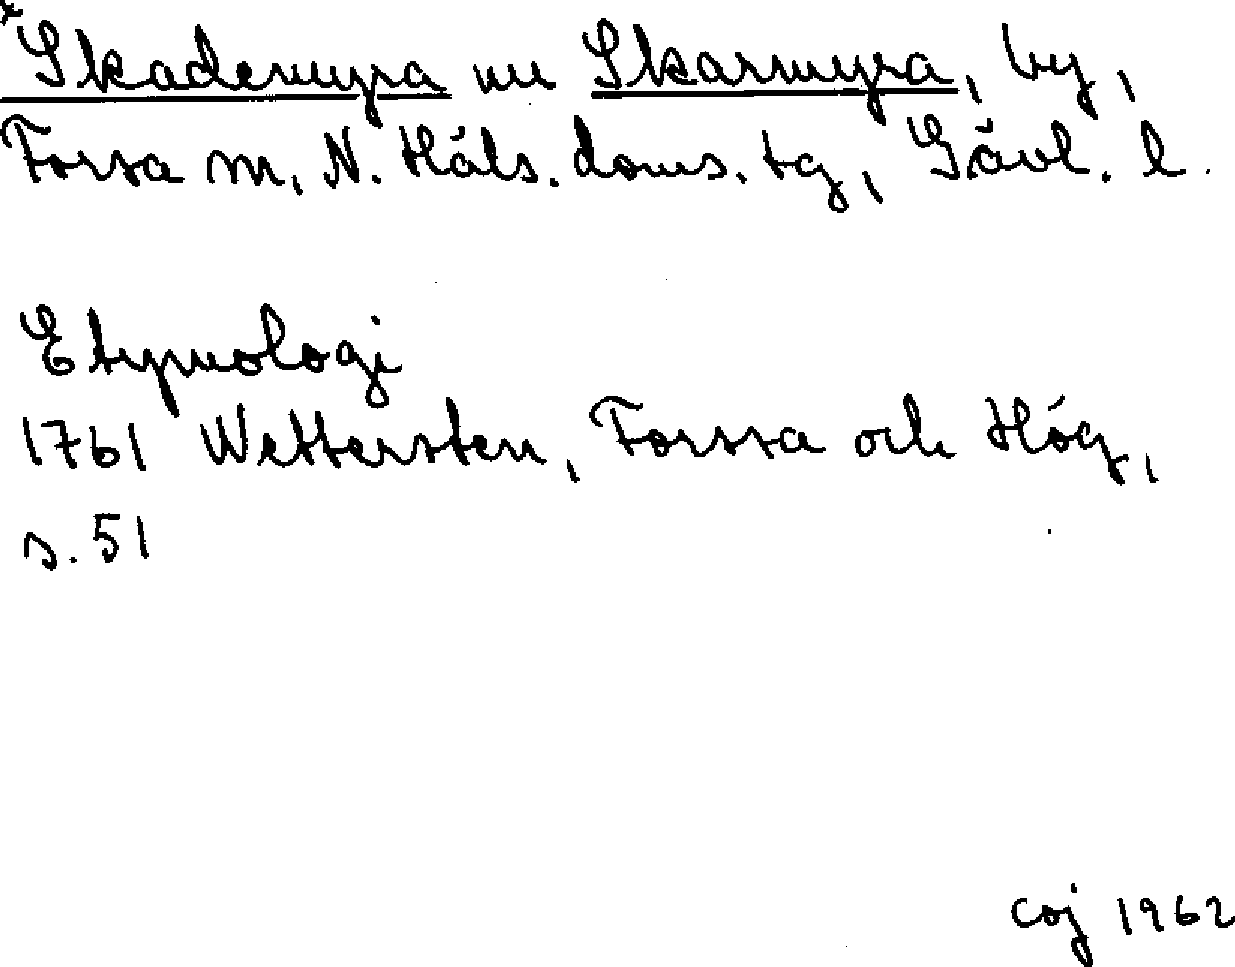 *Skademyra nu Skarmyra, by,
Forsa sn, N. Häls. doms. tg, Gävl. l.
Etymologi
1761 Wettersten, Forssa och Hög,
s. 51
coj 1962